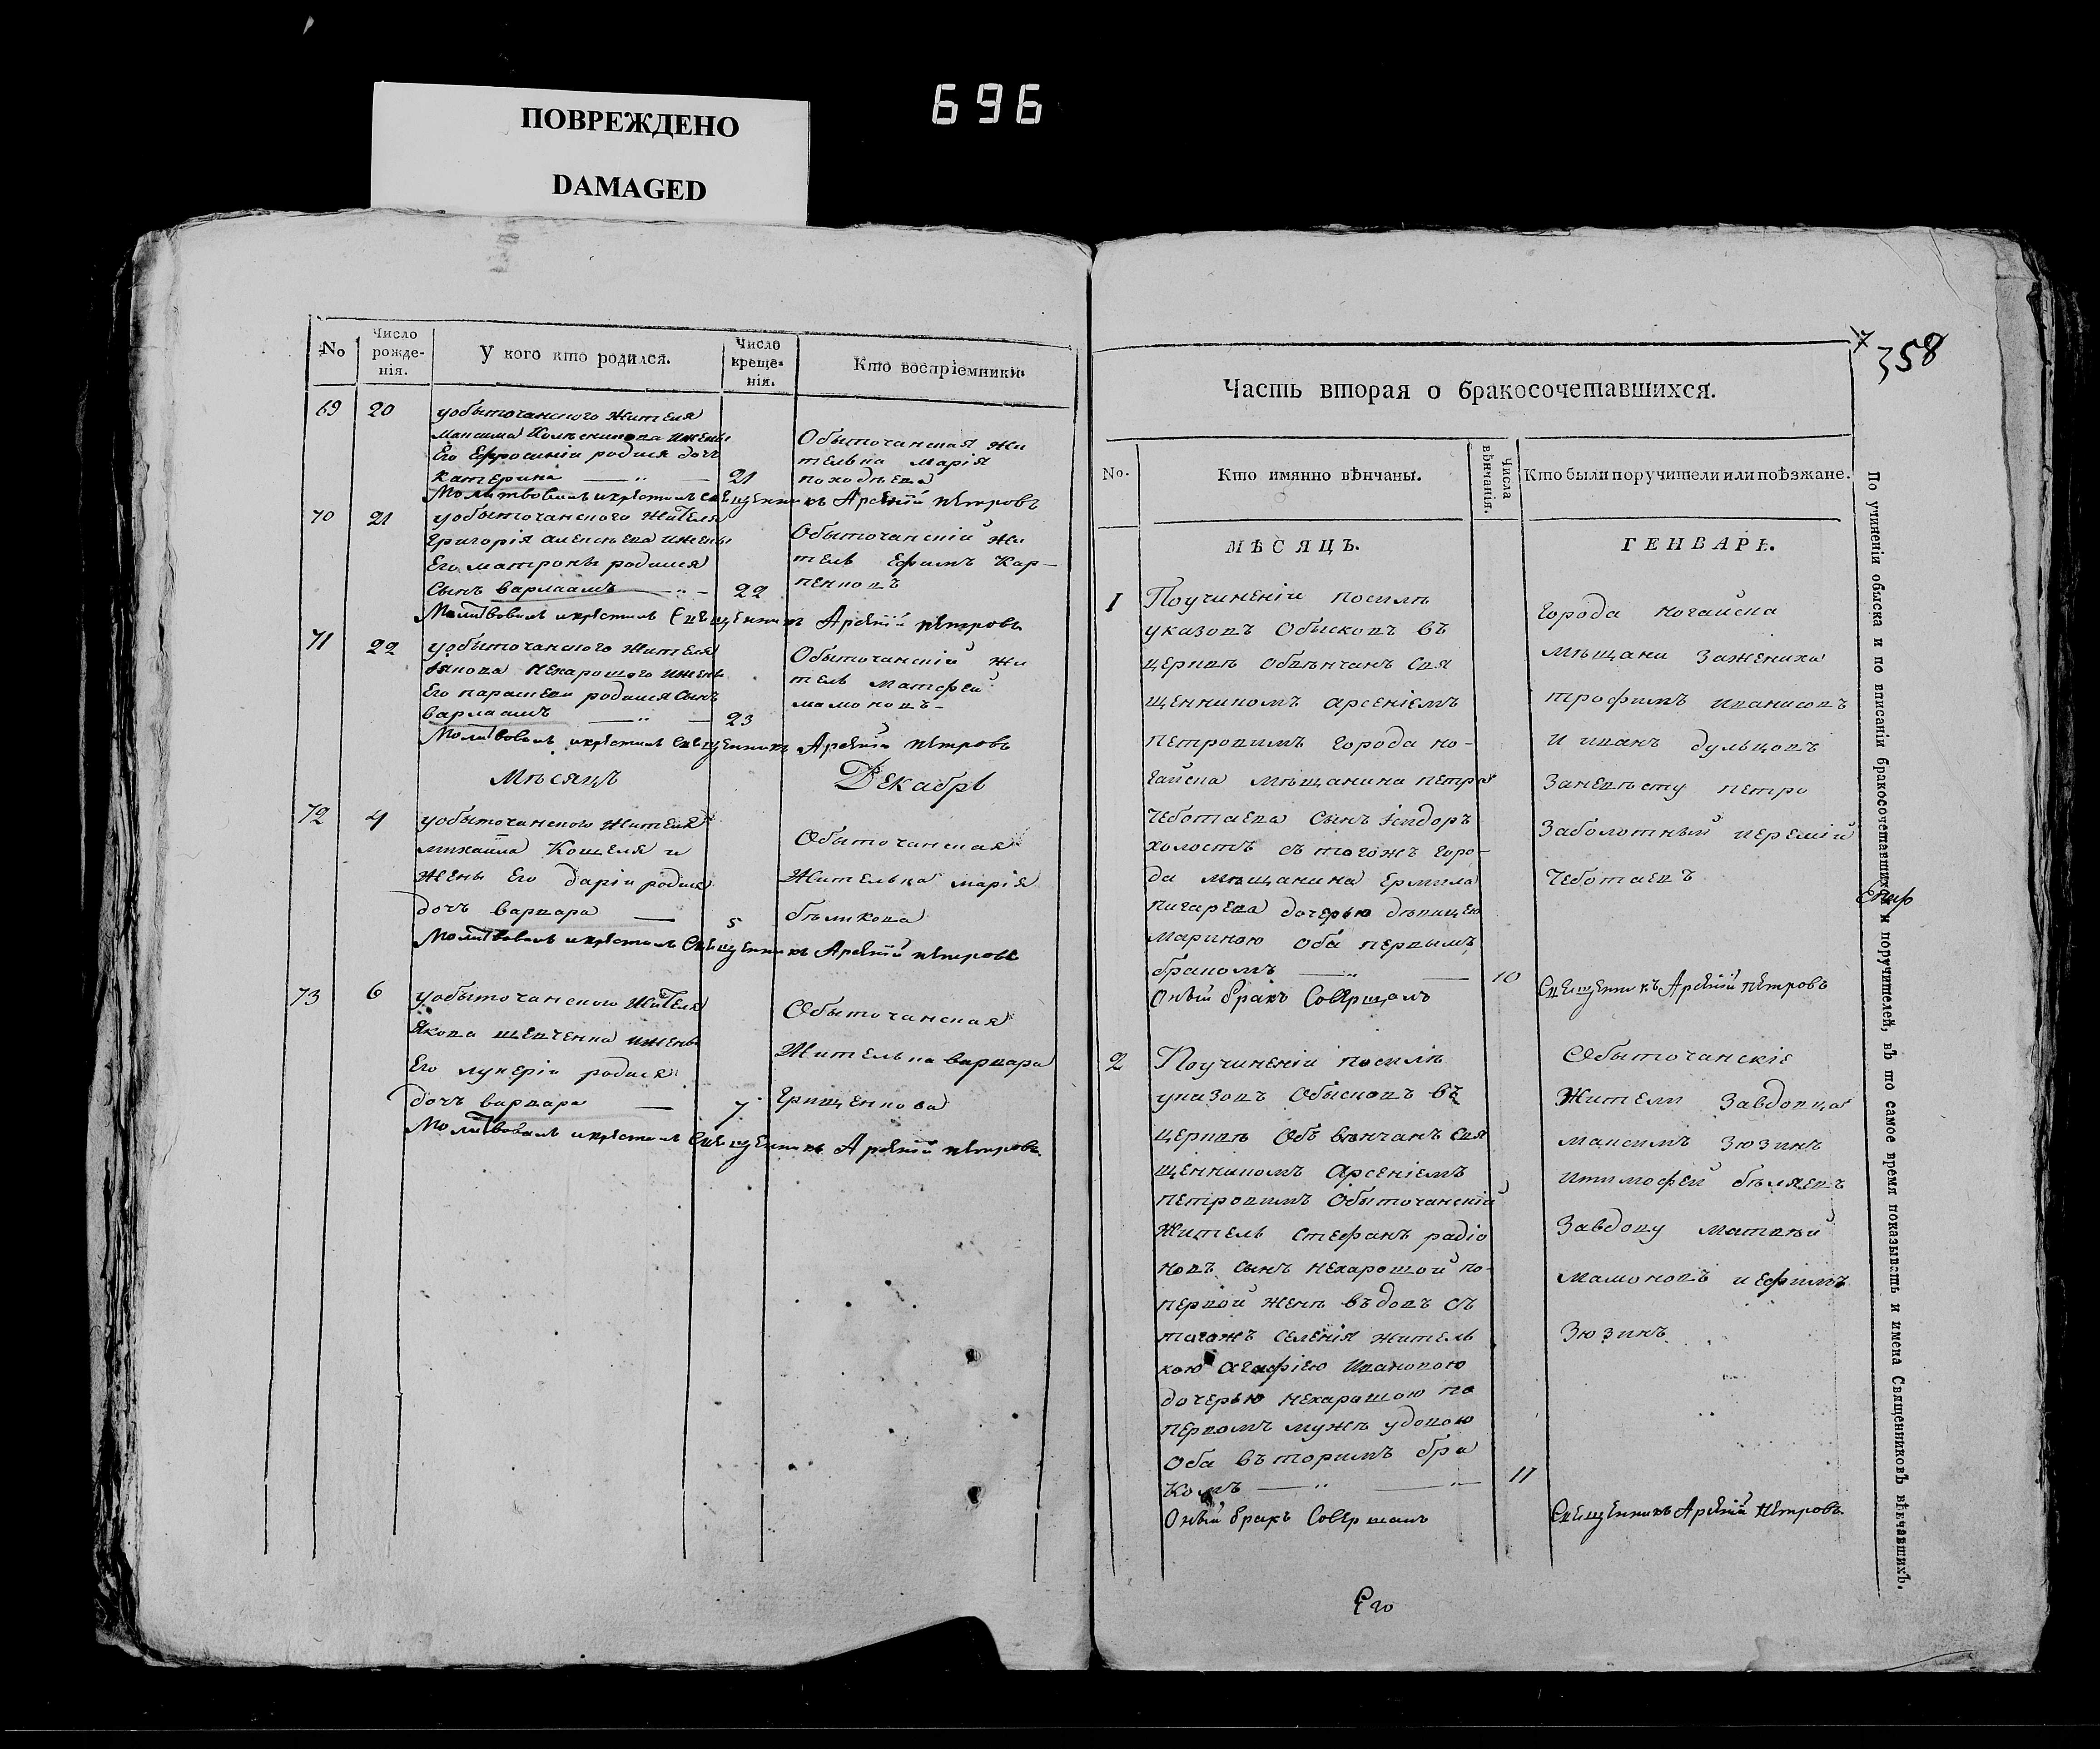 ПОВРЕЖДЕНО
DAMAGED
696
No
Число рожде-нія.
У кого кто родился.
Число креще-нія.
Кто воспріемники.
69 20 уобыточанского жителя
Максима Колѣсникова ижены
Его Ефросиніи родися дочь
Катерина 21
Обыточанская жи
телька марія
Молитвовалъ икрѣстилъ Священникъ Арсеній пѣтровъ
70 21 уобыточанского жителя
григорія алексѣева ижены
Его матроны родился
Сынъ варлаамъ 22
Обыточанскій жи
тель Ефимъ Кар-
пенковъ
Молитвовалъ икрѣстилъ Священникъ Арсеній пѣтровъ
71 22 уобыточанского жителя
якова нехарошого ижены
Его параскеви родился Сынъ
варлаамъ 23
Обыточанскій жи
тель матфей
мамоновъ
Молитвовалъ икрѣстилъ Священникъ Арсеній пѣтровъ
Мѣсяцъ Декабрь
72 4 уобыточанского жителя
михаила Кощеля и
жены Его даріи родися
дочь варвара 5
Обыточанская
Жителька марія
бѣликова
Молитвовалъ икрѣстилъ Священникъ Арсеній пѣтровъ
73 6 уобыточанского жителя
Якова шевченка ижены
Его лукеріи родися
дочь варвара 7
Обыточанская
Жителька варвара
Грищенкова
Молитвовалъ икрѣстилъ Священникъ Арсеній пѣтровъ
358
Часть вторая о бракосочетавшихся.
No.
Кто имянно вѣнчаны.
Числа вѣнчанія.
Кто были поручители или поѣзжане.
МѢСЯЦЪ. ГЕНВАРЬ.
1 Поучиненіи посилѣ
указовъ Обысковъ въ
церквѣ Обвѣнчанъ Свя
щенникомъ арсеніемъ
Петровимъ города но-
гайска мѣщанина петра
Чеботаева Сынъ Ісидоръ
холостъ съ тогожъ горо-
да мѣщанина Ермила
пигарева дочерью дѣвицею
Мариною Оба первымъ
бракомъ 10
Оный бракъ Совершалъ
города ногайска
мѣщани Зажениха
трофимъ иванисовъ
И иванъ дульцовъ
Заневѣсту петро
Заболотный иеремій
Чеботаевъ
Священникъ Арсеній пѣтровъ
2 Поучиненіи посилѣ
указовъ Обысковъ въ
церквѣ Объ вѣнчанъ Свя
щенникомъ Арсеніемъ
петровимъ Обыточанскій
Житель Стефанъ радіо
новъ сынъ нехарошой по-
первой женѣ въдовъ Съ
тогожъ Селенія житель
кою агафіею Ивановою
дочерью нехарошою по
первомъ мужѣ удовою
Оба въторимъ бра
комъ 11
Оный бракъ Совершалъ
Обыточанскіе
Жители Завдовца
максимъ Зюзинъ
итимофей бѣляевъ
Завдову матвѣй
мамоновъ иефимъ
Зюзинъ
Священникъ Арсеній пѣтровъ
Его
По учиненіи обыска и по вписаніи бракосочетавшихся и поручителей, въ то самое время показывать и имена Священниковъ вѣнчавшихъ.